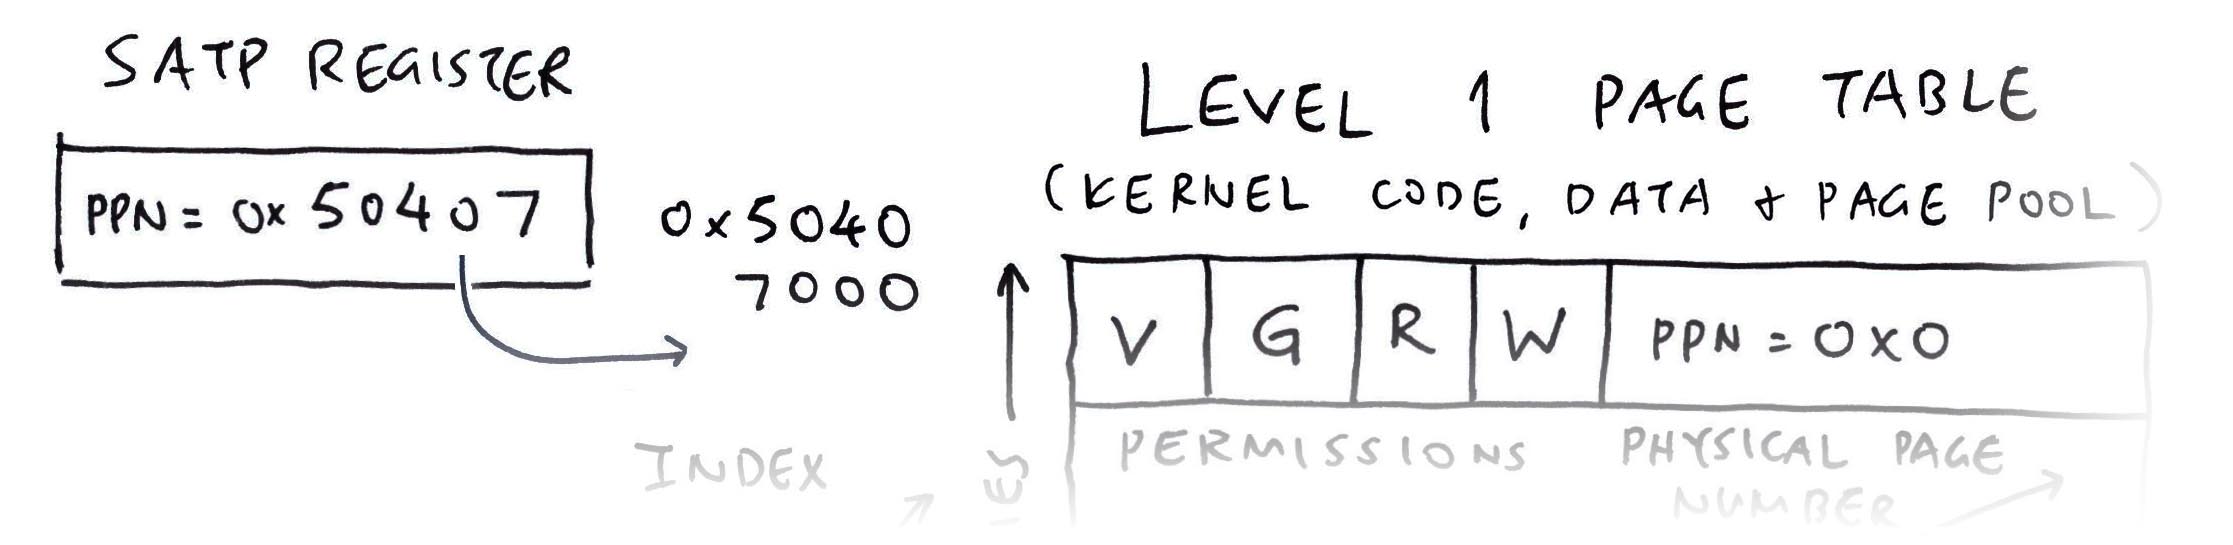 SATP REGISTER
PPN = 0x 50407
0x5040
7000
INDEX
LEVEL 1 PAGE TABLE
(KERNEL CODE, DATA + PAGE POOL)
V G R W PPN = 0x0
PERMISSIONS PHYSICAL PAGE
NUMBER